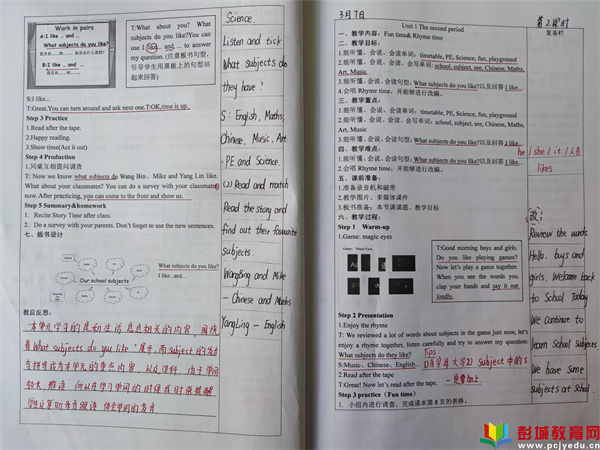 Work in pairs
A:I like ... and ...
What subjects do you like?
B:I like ... and ...
T:What about you? What
subjects do you like?You can
use I like... and ... to answer
my question. (注意板书句型,
引导学生用黑板上的句型站
起来回答)
S:I like...
T:Great.You can turn around and ask next one.T:OK,time is up.
Step 3 Practice
1.Read after the tape.
2.Happy reading.
3.Show time(Act it out)
Step 4 Production
1.同桌互相提问调查
T: Now we know what subjects do Wang Bin, Mike and Yang Lin like.
What about your classmates? You can do a survey with your classmates
now. After practicing, you can come to the front and show us.
Step 5 Summary&homework
1. Recite Story Time after class.
2. Do a survey with your parents. Don't forget to use the new sentences.
七、板书设计
Our school subjects
What subjects do you like?
I like... and...
教后反思:
本单元学习的是和生活息息相关的内容,围绕
着What subjects do you like
Science.
Listen and tick
What subjects do
they have?
S: English, Maths,
Chinese, Music, Art
, PE and Science.
(2) Read and match
Read the story and
find out their favourite
subjects.
WangBing and Mike
- Chinese and Maths
YangLing - English
3月7日
第2课时
Unit 1 The second period
复备栏
一、教学内容: Fun time& Rhyme time
二、教学目标:
1.能听懂、会说、会读单词: timetable, PE, Science, fun, playground
2.能听懂、会说、会读、会写单词: school, subject, see, Chinese, Maths,
Art, Music
3.能听懂、会说、会读句型: What subjects do you like?以及回答 I like...
4.会唱 Rhyme time, 并能够进行改编。
三、教学重点:
1.能听懂、会说、会读单词: timetable, PE, Science, fun, playground
2.能听懂、会说、会读、会写单词: school, subject, see, Chinese, Maths,
Art, Music
3.能听懂、会说、会读句型: What subjects do you like?以及回答 I like...
四、教学难点:
1.能听懂、会说、会读句型: What subjects do you like?以及回答 I like...
2.会唱 Rhyme time, 并能够进行改编。
he / she / it / 人名
likes
五、课前准备:
1.准备录音机和磁带
2.教学图片、多媒体课件
3.板书准备:本节课课题、教学目标
六、教学过程:
Step 1 Warm-up
1.Game: magic eyes
T:Good morning boys and girls.
Do you like playing games?
Now let's play a game together.
When you see the words you
clap your hands and say it out
loudly.
Step 2 Presentation
1.Enjoy the rhyme
T: We reviewed a lot of words about subjects in the game just now, let's
enjoy a rhyme together, listen carefully and try to answer my question:
What subjects do they like?
Tips
S:Music, Chinese, English...
①首字母大写② Subject 中的s
2.Read after the tape
T:Great! Now let's read after the tape.
一定要加上.
Step 3 practice (Fun time)
1. 小组内进行调查,完成课本第 8 页的表格:
改:
Review the words
Hello. boys and
girls. Welcome back
to School Today
We continue to
learn School subjects
We have some
subjects at School.
彭城教育网
www.pcjyedu.cn